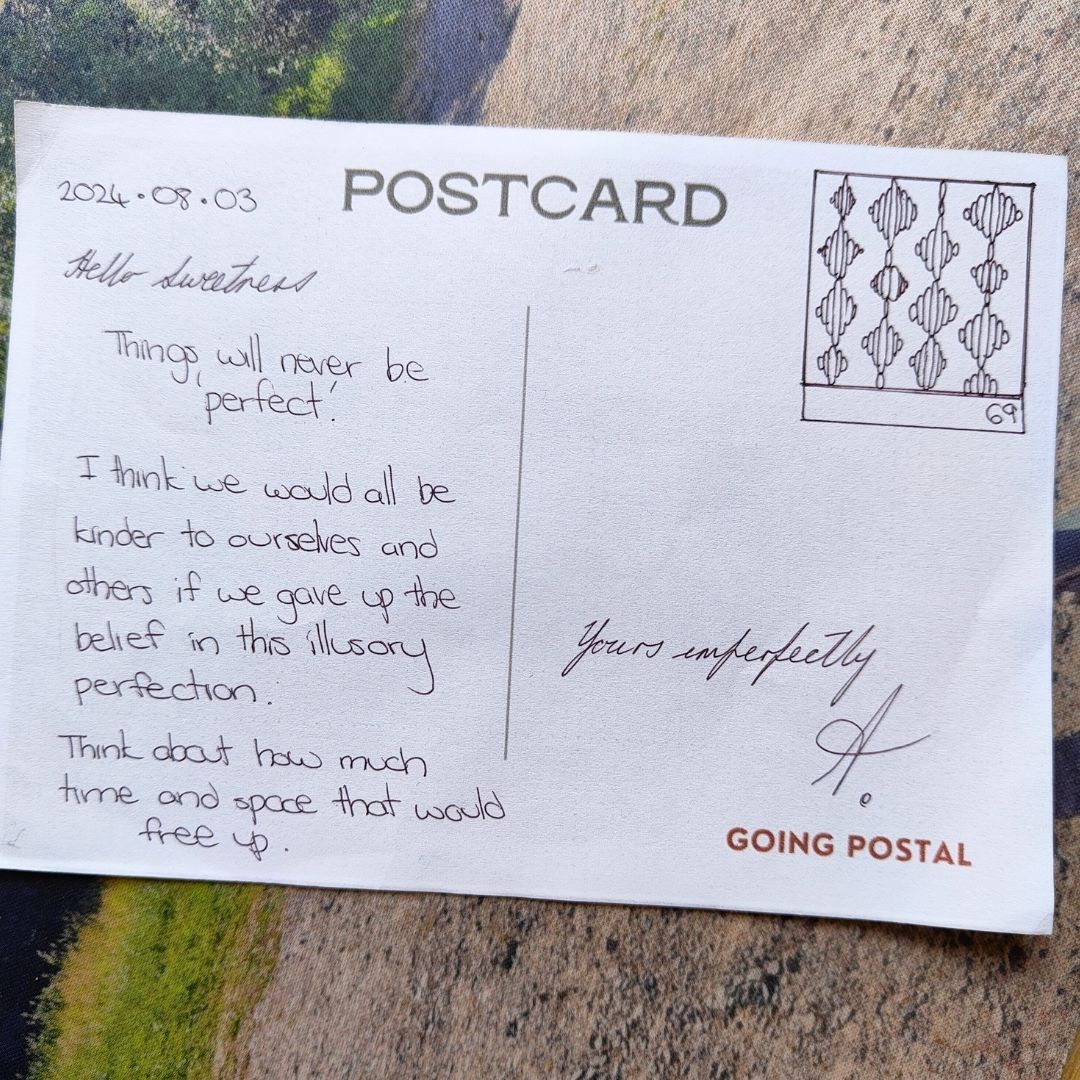 2024.08.03
POSTCARD
Hello Sweetness
Things will never be
'perfect'.
I think we would all be
kinder to ourselves and
others if we gave up the
belief in this illusory
perfection.
Think about how much
time and space that would
free up.
69
Yours imperfectly
A.
GOING POSTAL